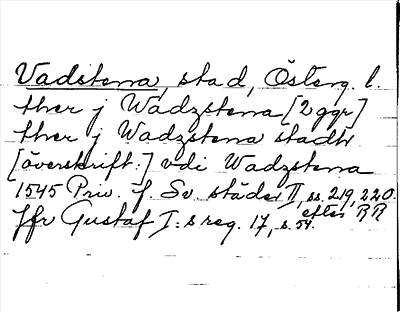 Vadstena, stad, Österg. l.
ther j Wadzstena [2 ggr]
ther j Wadzstena stadh
[överskrift:] vdi Wadzstena
1545 Priv. f. Sv. städer II, ss. 219, 220.
Jfr Gustaf I:s reg. 17, s. 54. efter RR